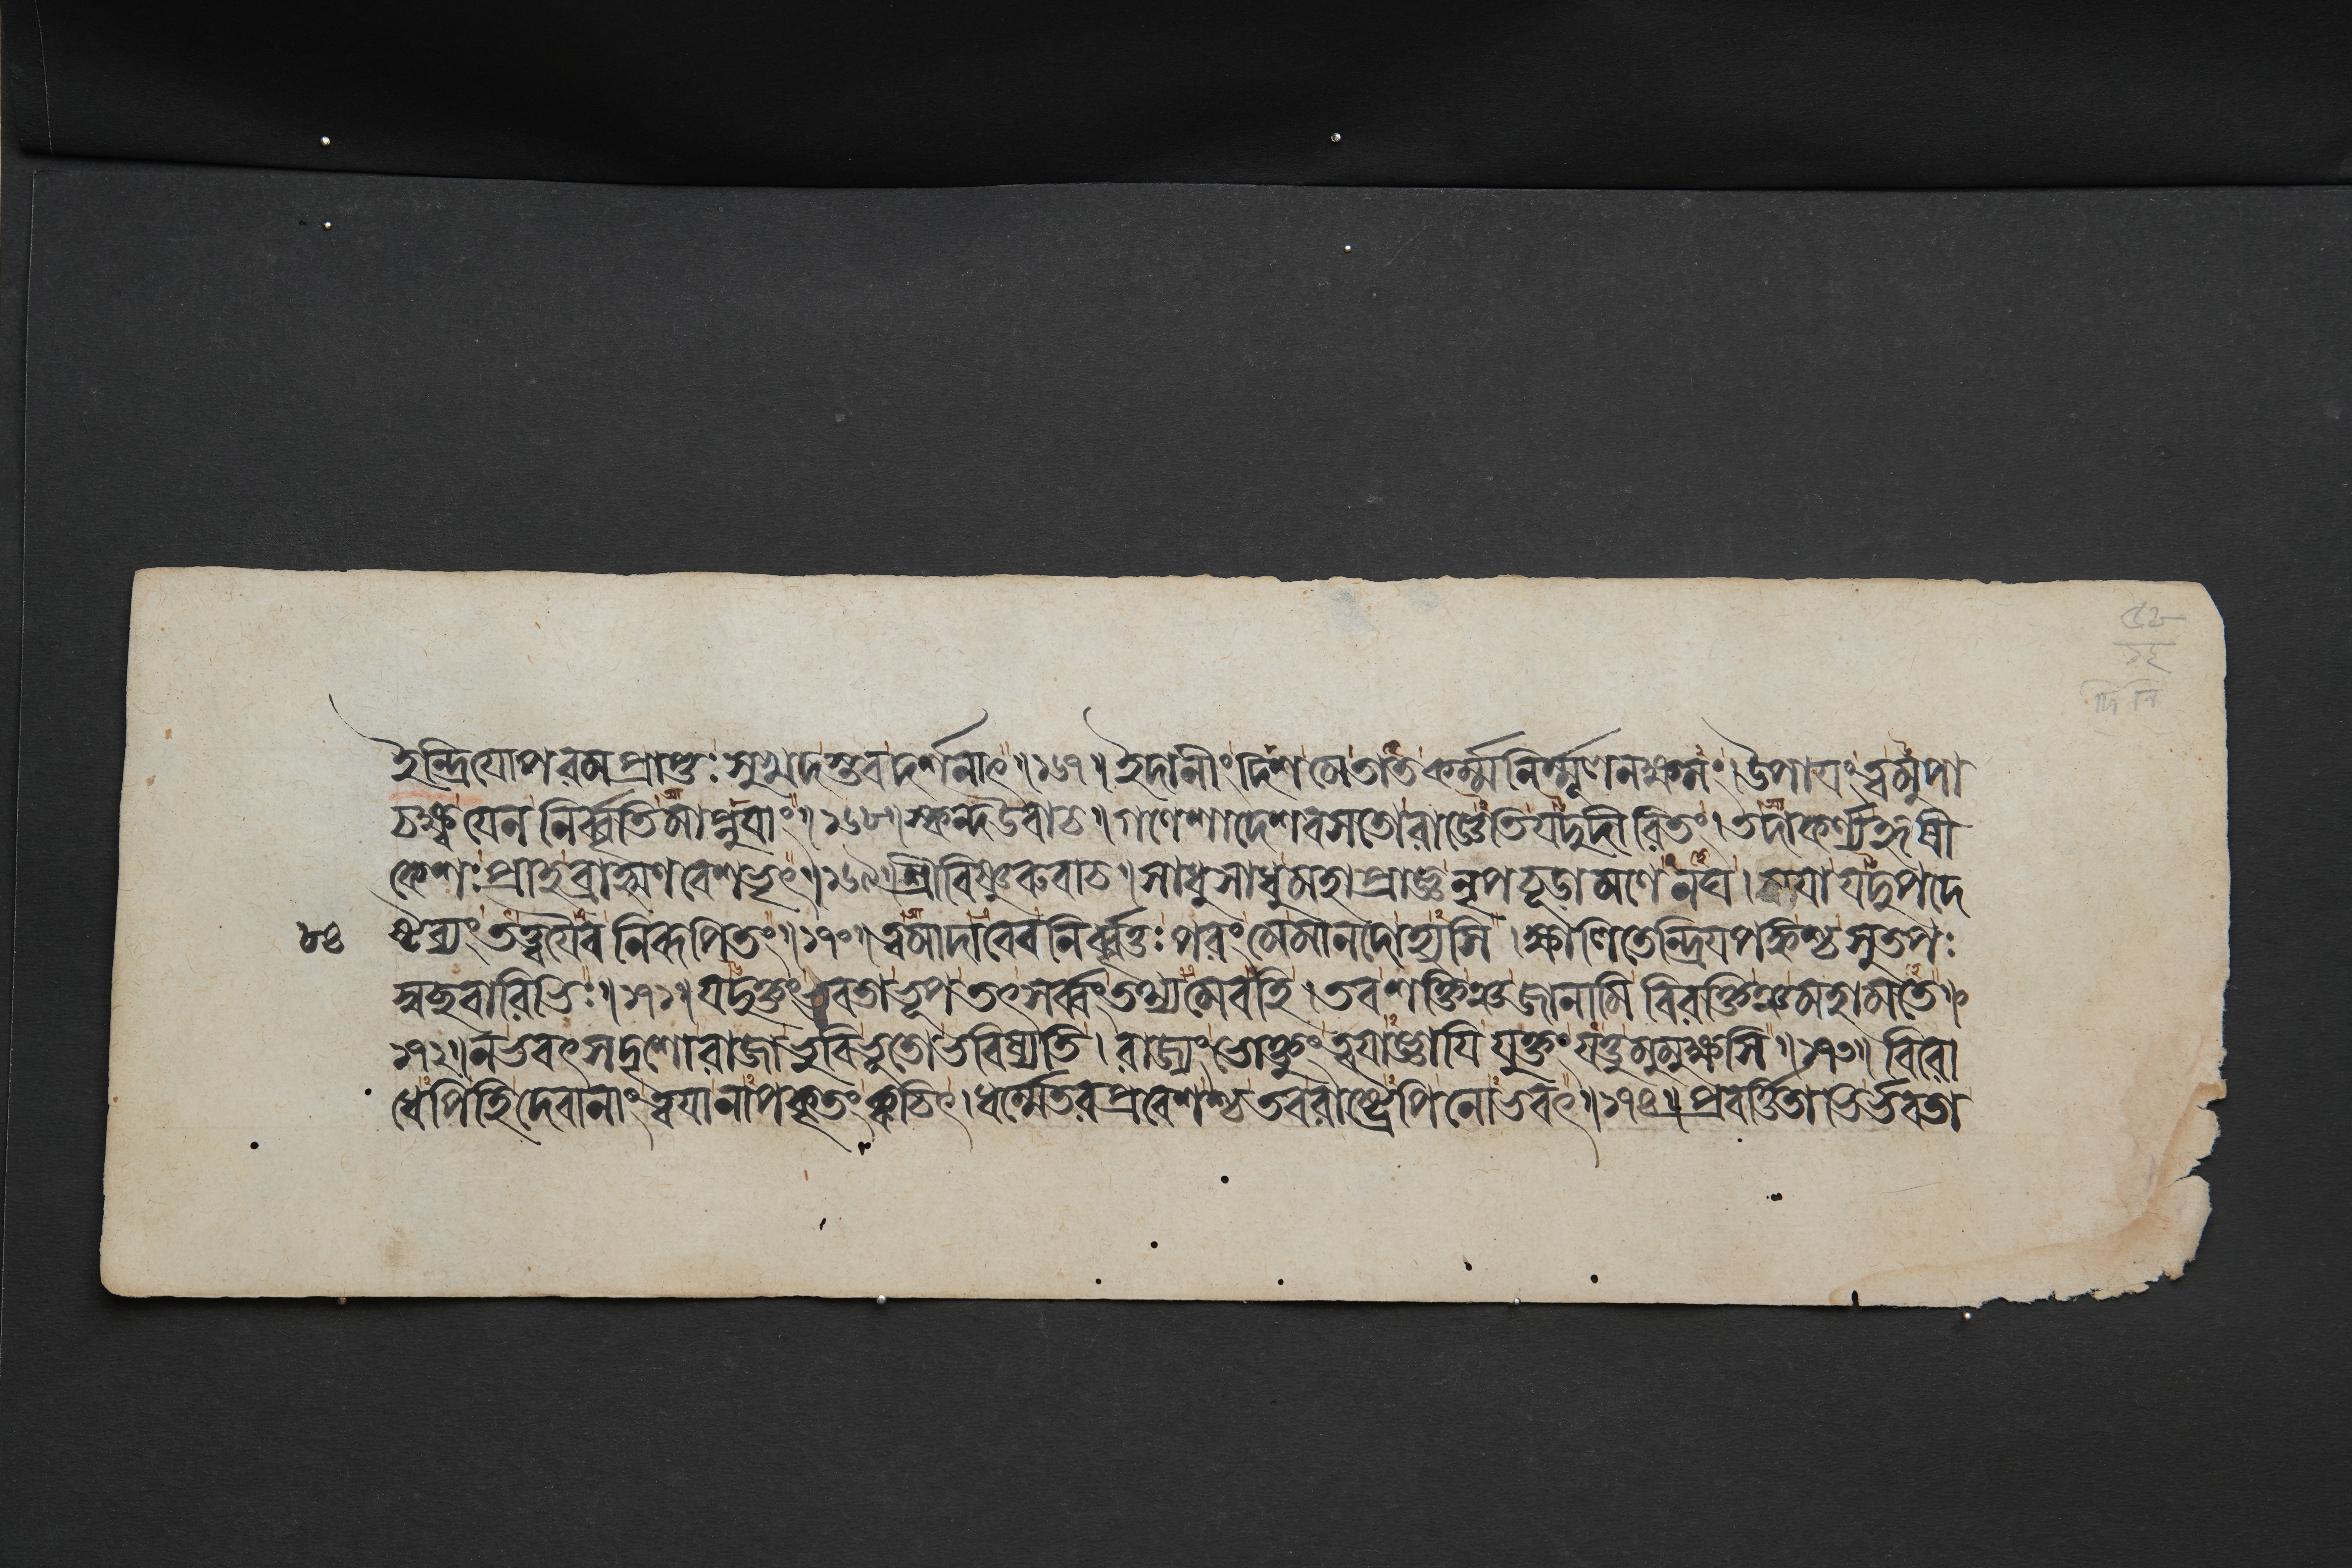 ইন্দ্রিযোপরমপ্রাপ্তঃসুখদস্তবদর্শনাৎ॥১৬৭॥ইদানীংদিশমেতাতকর্ম্মনির্ম্মূলনক্ষমং।উপাযংত্বমুপা
চক্ষ্বযেননির্বৃতিমাপ্নুযাং॥১৬৮॥স্কন্দউবাচ॥গণেশাদেশবসতোরাজ্ঞেতিযদুদীরিতং।তদাকর্ণ্যহৃষী
কেশঃপ্রাহব্রাহ্মণবেশভৃৎ॥১৬৯॥শ্রীবিষ্ণুরুবাচ॥সাধুসাধুমহাপ্রাজ্ঞনৃপচূড়ামণেনঘ।মযাযদুপদে
৮৪ ষ্টব্যংতত্ত্বযৈবনিরূপিতং॥১৭০॥ত্বমাদাবেবনির্বৃত্তঃপরংমেমানদোহ্যসি।ক্ষালিতেন্দ্রিযপঙ্কশ্চসুতপঃ
স্বচ্ছবারিভিঃ॥১৭১॥যদুক্তংভবতাভূপতৎসর্ব্বংতথ্যমেবহি।তবশক্তিঞ্চজানামিবিরক্তিঞ্চমহামতে॥
১৭২॥নভবৎসদৃশোরাজাভুবিভূতোভবিষ্যতি।রাজ্যংভোক্তুংত্বযাজ্ঞাযিযুক্তংযত্তুমুমুক্ষসি॥১৭৩॥বিরো
ধেপিহিদেবানাংত্বযানাপকৃতংক্বচিৎ।ধর্ম্মেতরপ্রবেশশ্চতবরাষ্ট্রেপিনোভবৎ॥১৭৪॥প্রবর্ত্তিতাভির্ভবতা